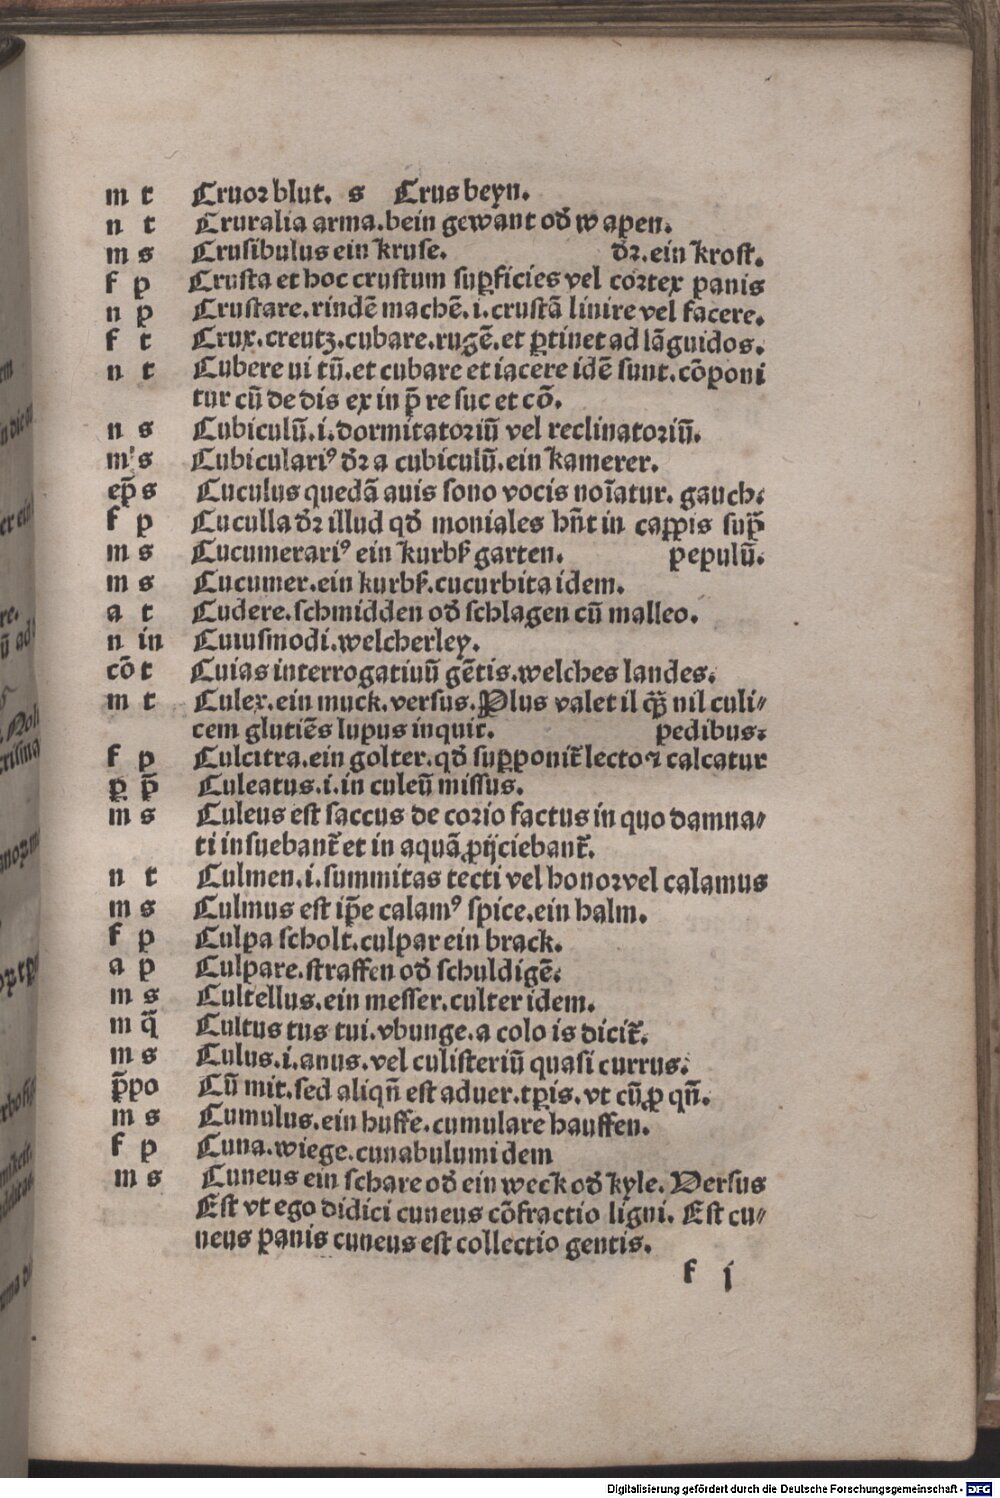 m t Cruor blut. s Crus beyn.
n t Cruralia arma. bein gewant od̕ wapen.
m s Crusibulus ein kruse. dꝛ. ein krost.
f p Crusta et hoc crustum suꝑficies vel cortex panis
n p Crustare. rindē machē. i. crustā linire vel facere.
f t Crux. creutz. cubare. rugē. et ꝑtinet ad lāguidos.
n t Cubere ui tū. et cubare et iacere idē sunt. cōponi
tur cū de dis ex in p̄ re suc et cō.
n s Cubiculū. i. dormitatoriū vel reclinatoriū.
m s Cubiculariꝰ dꝛ a cubiculū. ein kamerer.
ep̄ s Cuculus quedā auis sono vocis noīatur. gauch.
f p Cuculla dꝛ illud qd̕ moniales hn̄t in caꝑpis suꝑ
m s Cucumerariꝰ ein kurbß garten. pepulū.
m s Cucumer. ein kurbß. cucurbita idem.
a t Cudere. schmidden od̕ schlagen cū malleo.
n in Cuiusmodi. welcherley.
cō t Cuias interrogatiuū gētis. welches landes.
m t Culex. ein muck. versus. Plus valet il qꝫ̄ nil culi⸗
cem glutiēs lupus inquit. pedibus.
f p Culcitra. ein golter. qd̕ supꝑonit̄ lecto ⁊ calcatur
ꝑ p̄ Culeatus. i. in culeū missus.
m s Culeus est saccus de corio factus in quo damna⸗
ti insuebant̄ et in aquā ꝓijciebant̄.
n t Culmen. i. summitas tecti vel honor vel calamus
m s Culmus est ip̄e calamꝰ spice. ein halm.
f p Culpa scholt. culpar ein brack.
a p Culpare. straffen od̕ schuldigē.
m s Cultellus. ein messer. culter idem.
m q̄ Cultus tus tui. vbunge. a colo is dicit̄.
m s Culus. i. anus. vel culisteriū quasi currus.
p̄po Cū mit. sed aliqn̄ est aduer. tꝑis. vt cū ꝓ qn̄.
m s Cumulus. ein huffe. cumulare hauffen.
f p Cuna. wiege. cunabulum idem
m s Cuneus ein schare od̕ ein weck od̕ kyle. Versus
Est vt ego didici cuneus cōfractio ligni. Est cu⸗
neus panis cuneus est collectio gentis.
f j
Digitalisierung gefördert durch die Deutsche Forschungsgemeinschaft - DFG